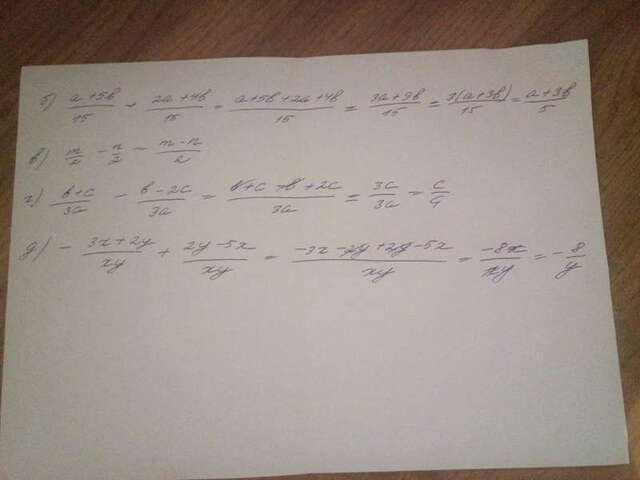 б) (a+5b)/15 + (2a+4b)/15 = (a+5b+2a+4b)/15 = (3a+9b)/15 = 3(a+3b)/15 = (a+3b)/5
в) m/2 - n/2 = (m-n)/2
г) (b+c)/3a - (b-2c)/3a = (b+c-b+2c)/3a = 3c/3a = c/a
д) - (3x+2y)/xy + (2y-5x)/xy = (-3x-2y+2y-5x)/xy = -8x/xy = -8/y